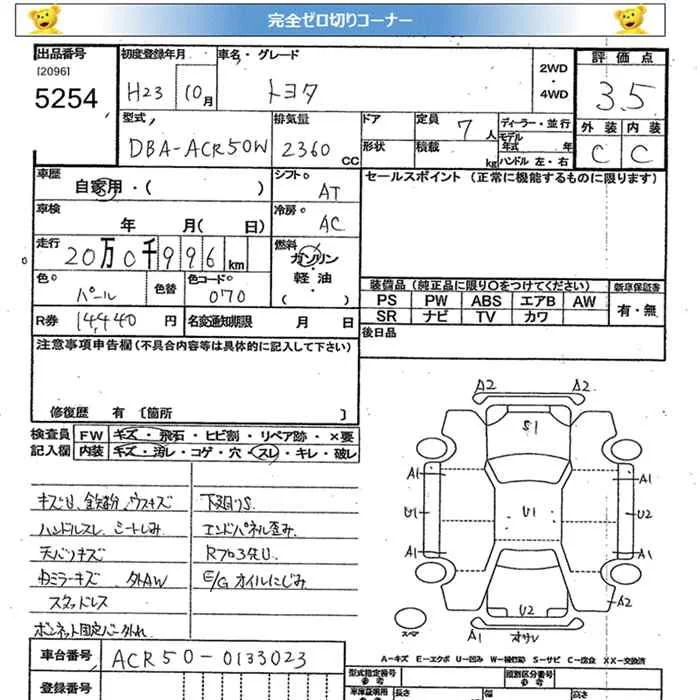 完全ゼロ切りコーナー
出品番号 初度登録年月 車名・グレード 2WD・4WD 評価点
[2096]
5254 H23 10月 トヨタ 3.5
外装 内装
C C
型式 排気量 ドア 定員 7人 ディーラー・並行
DBA-ACR50W 2360cc 形状 積載 kg モデル年式 年
ハンドル 左・右
車歴 自家用・( ) シフト AT セールスポイント (正常に機能するものに限ります)
車検 年 月( 日) 冷房 AC
走行 20万0千996km 燃料 ガソリン・軽油・( )
色 パール 色替 色コード 070
装備品 (純正品に限り○をつけてください) 新車保証書
PS PW ABS エアB AW 有・無
SR ナビ TV カワ
R券 14,440円 名変通知期限 月 日
後日品
注意事項申告欄 (不具合内容等は具体的に記入して下さい)
修復歴 有 [箇所 ]
検査員記入欄 FW キズ・飛石・ヒビ割・リペア跡・×要
内装 キズ・汚レ・コゲ・穴・スレ・キレ・破レ
キズU、鉄粉、ウスキズ 下廻りS
ハンドルスレ、シートしみ エンドパネル歪み
天バリキズ Rフロア先U
中ミラーキズ 外AW E/Gオイルにじみ
スタッドレス
ボンネット固定バー外れ
A2 A2
S1
A1 A1
U1 U1 U2
A1 A1
U2 A2
スマ A1 オサレ
A=キズ E=エクボ U=凹み W=補修跡 S=サビ C=腐食 XX=交換済
車台番号 ACR50-0133023 型式指定番号 参考 類別区分番号 参考
登録番号 長さ 幅 高さ